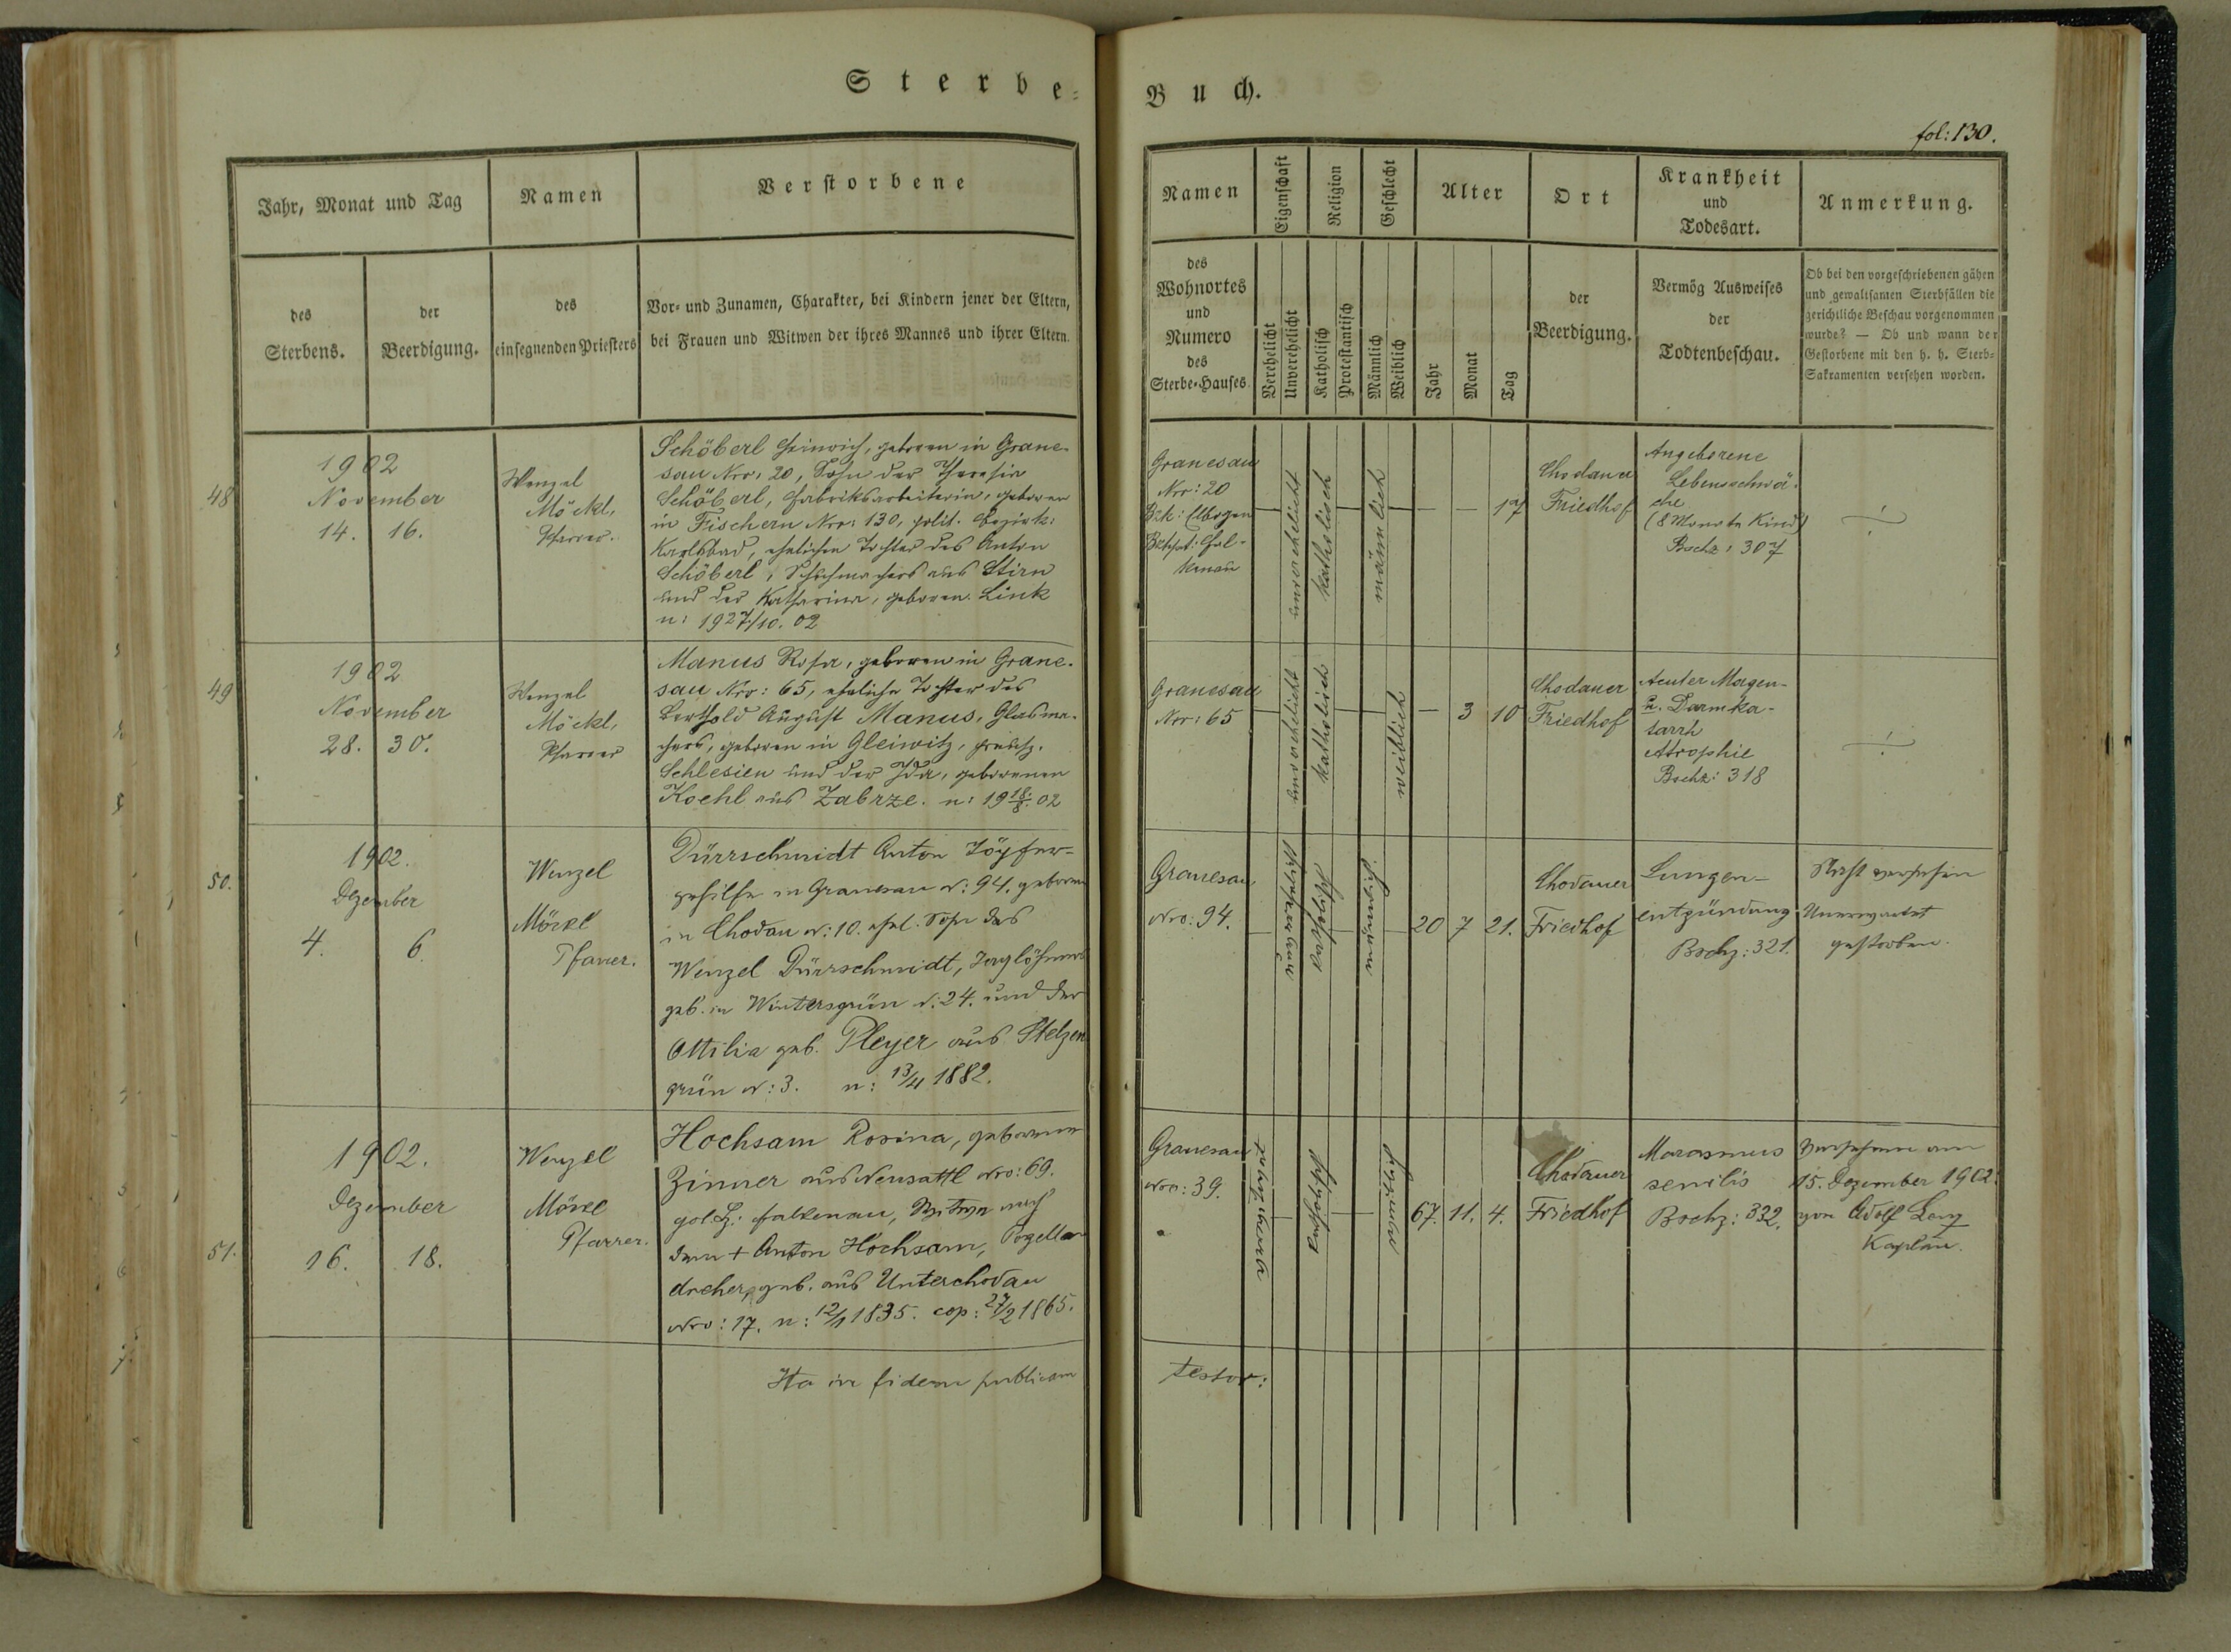 Sterbe-
Buch.
fol: 130.
Jahr, Monat und Tag
Namen
Verstorbene
des
Sterbens.
der
Beerdigung.
des
einsegnenden Priesters
Vor- und Zunamen, Charakter, bei Kindern jener der Eltern,
bei Frauen und Witwen der ihres Mannes und ihrer Eltern.
Namen
Eigenschaft
Religion
Geschlecht
Alter
Ort
Krankheit
und
Todesart.
Anmerkung.
des
Wohnortes
und
Numero
des
Sterbe-Hauses.
Verehelicht
Unverehelicht
Katholisch
Protestantisch
Männlich
Weiblich
Jahr
Monat
Tag
der
Beerdigung.
Vermög Ausweises
der
Todtenbeschau.
Ob bei den vorgeschriebenen gähen
und gewaltsamen Sterbfällen die
gerichtliche Beschau vorgenommen
wurde? — Ob und wann der
Gestorbene mit den h. h. Sterb-
Sakramenten versehen worden.
48
1902
November
14. 16.
Wenzel
Möckl,
Pfarrer.
Schöberl Heinrich, geboren in Grane-
sau Nro: 20, Sohn der Theresia
Schöberl, Fabriksarbeiterin, geboren
in Fischern Nro: 130, polit. Bezirk:
Karlsbad, ehelichen Tochter des Anton
Schöberl, Schuhmachers aus Stirn
und der Katharina, geboren. Link
n: 19 27/10. 02
Granesau
Nro: 20
Bzk: Elbogen
Bzhpt: Fal-
kenau
unverehelicht
katholisch
männlich
— — 17
Chodauer
Friedhof
Angeborene
Lebensschwä-
che
(8 Monate Kind)
Bschz: 307
49
1902
November
28. 30.
Wenzel
Möckl,
Pfarrer
Manus Rosa, geboren in Grane-
sau Nro: 65, eheliche Tochter des
Berthold August Manus, Glasma-
chers, geboren in Gleiwitz, preuß.
Schlesien und der Ida, geborenen
Koehl aus Zabrze. n: 19 18/8. 02
Granesau
Nro: 65
unverehelicht
katholisch
weiblich
— 3 10
Chodauer
Friedhof
Acuter Magen-
u. Darmka-
tarrh
Atrophie
Bschz: 318
50.
1902.
Dezember
4. 6.
Wenzel
Möckl
Pfarrer.
Dürrschmidt Anton Töpfer-
gehilfe in Granesau N: 94. geboren
in Chodau N: 10. ehel. Sohn des
Wenzel Dürrschmidt, Taglöhners
geb. in Wintersgrün N: 24. und der
Ottilia geb. Pleyer aus Stelzen
grün N: 3. n: 13/4 1882.
Granesau
Nro: 94.
unverehelicht
katholisch
männlich
20 7 21.
Chodauer
Friedhof
Lungen-
entzündung
Bschz: 321.
Nicht versehen
Unerwartet
gestorben.
51.
1902.
Dezember
16. 18.
Wenzel
Möckl
Pfarrer.
Hochsam Rosina, geborene
Zinner aus Neusattl Nro: 69.
pol. Bz: Falkenau, Witwe nach
dem + Anton Hochsam, Porzellan
dreher, geb. aus Unterchodau
Nro: 17. n: 12/1 1835. cop: 27/2 1865.
Granesau
Nro: 39.
katholisch
weiblich
67. 11. 4.
Chodauer
Friedhof
Marasmus
senilis
Bschz: 332.
Versehen am
15. Dezember 1902.
von Adolf Lang
Kaplan.
Ita in fidem publicam
testor: